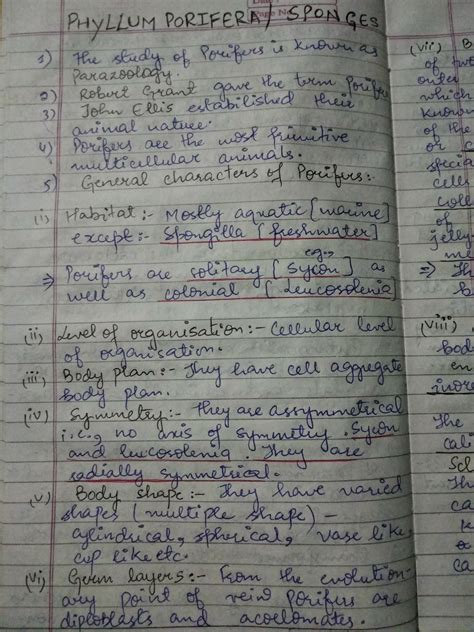 PHYLLUM PORIFERA / SPONGES
1) The study of Porifers is known as
Parazoology.
2) Robert Grant gave the term Porifera
3) John Ellis established their
animal nature.
4) Porifers are the most primitive
multicellular animals.
5) General characters of Porifers:-
(i) Habitat:- Mostly aquatic [marine]
except:- Spongilla [freshwater]
⇒ Porifers are solitary [eg:- Sycon] as
well as colonial [Leucosolenia]
(ii) Level of organisation:- Cellular level
of organisation.
(iii) Body plan:- They have cell aggregate
body plan.
(iv) Symmetry:- They are assymmetrical
i.e., no axis of symmetry. Sycon
and leucosolenia. They are
radially symmetrical.
(v) Body shape:- They have varied
shapes (multiple shape) -
cylindrical, spherical, vase like,
cup like etc.
(vi) Germ layers:- From the evolution-
ary point of veiw Porifers are
diploblasts and acoelomates.
(vii) B
of
order
which
know
of the
or
specia
cells
coll
of
jelly
me
⇒ Th
b
(viii)
body
en
inor
The
cal
Scl
Th
ca
k
ca